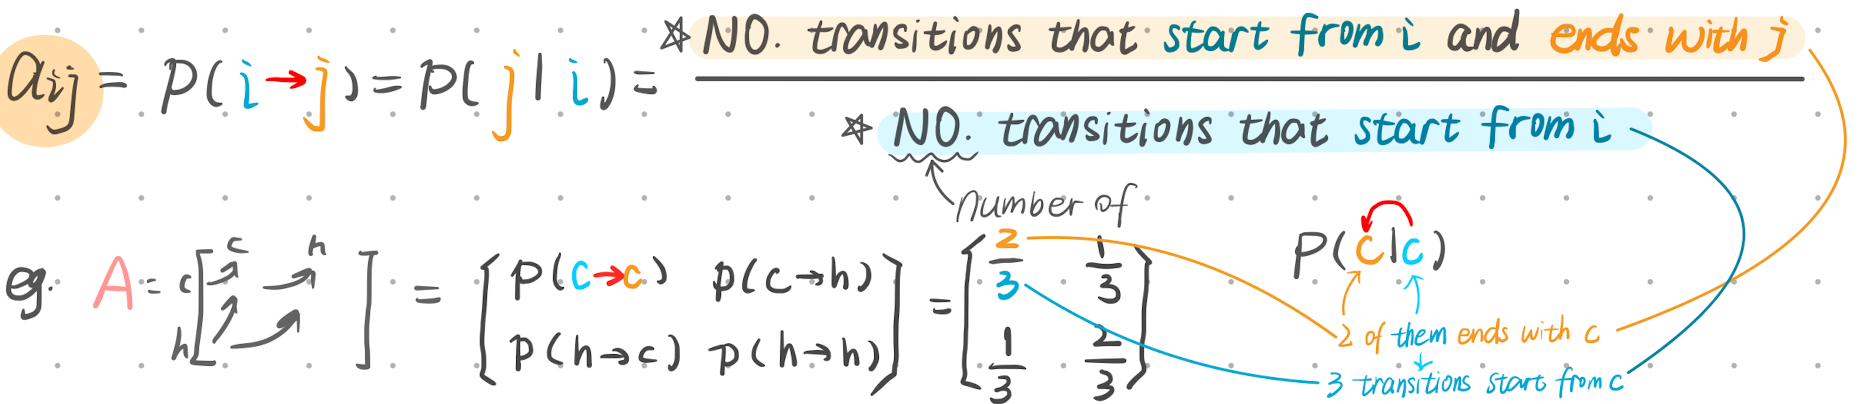 aij = P(i→j) = P(j|i) = ☆ NO. transitions that start from i and ends with j
☆ NO. transitions that start from i
number of
eg. A = c h c h = [P(c→c) P(c→h) P(h→c) P(h→h)] = [2/3 1/3 1/3 2/3]
P(c|c)
2 of them ends with c
3 transitions start from c